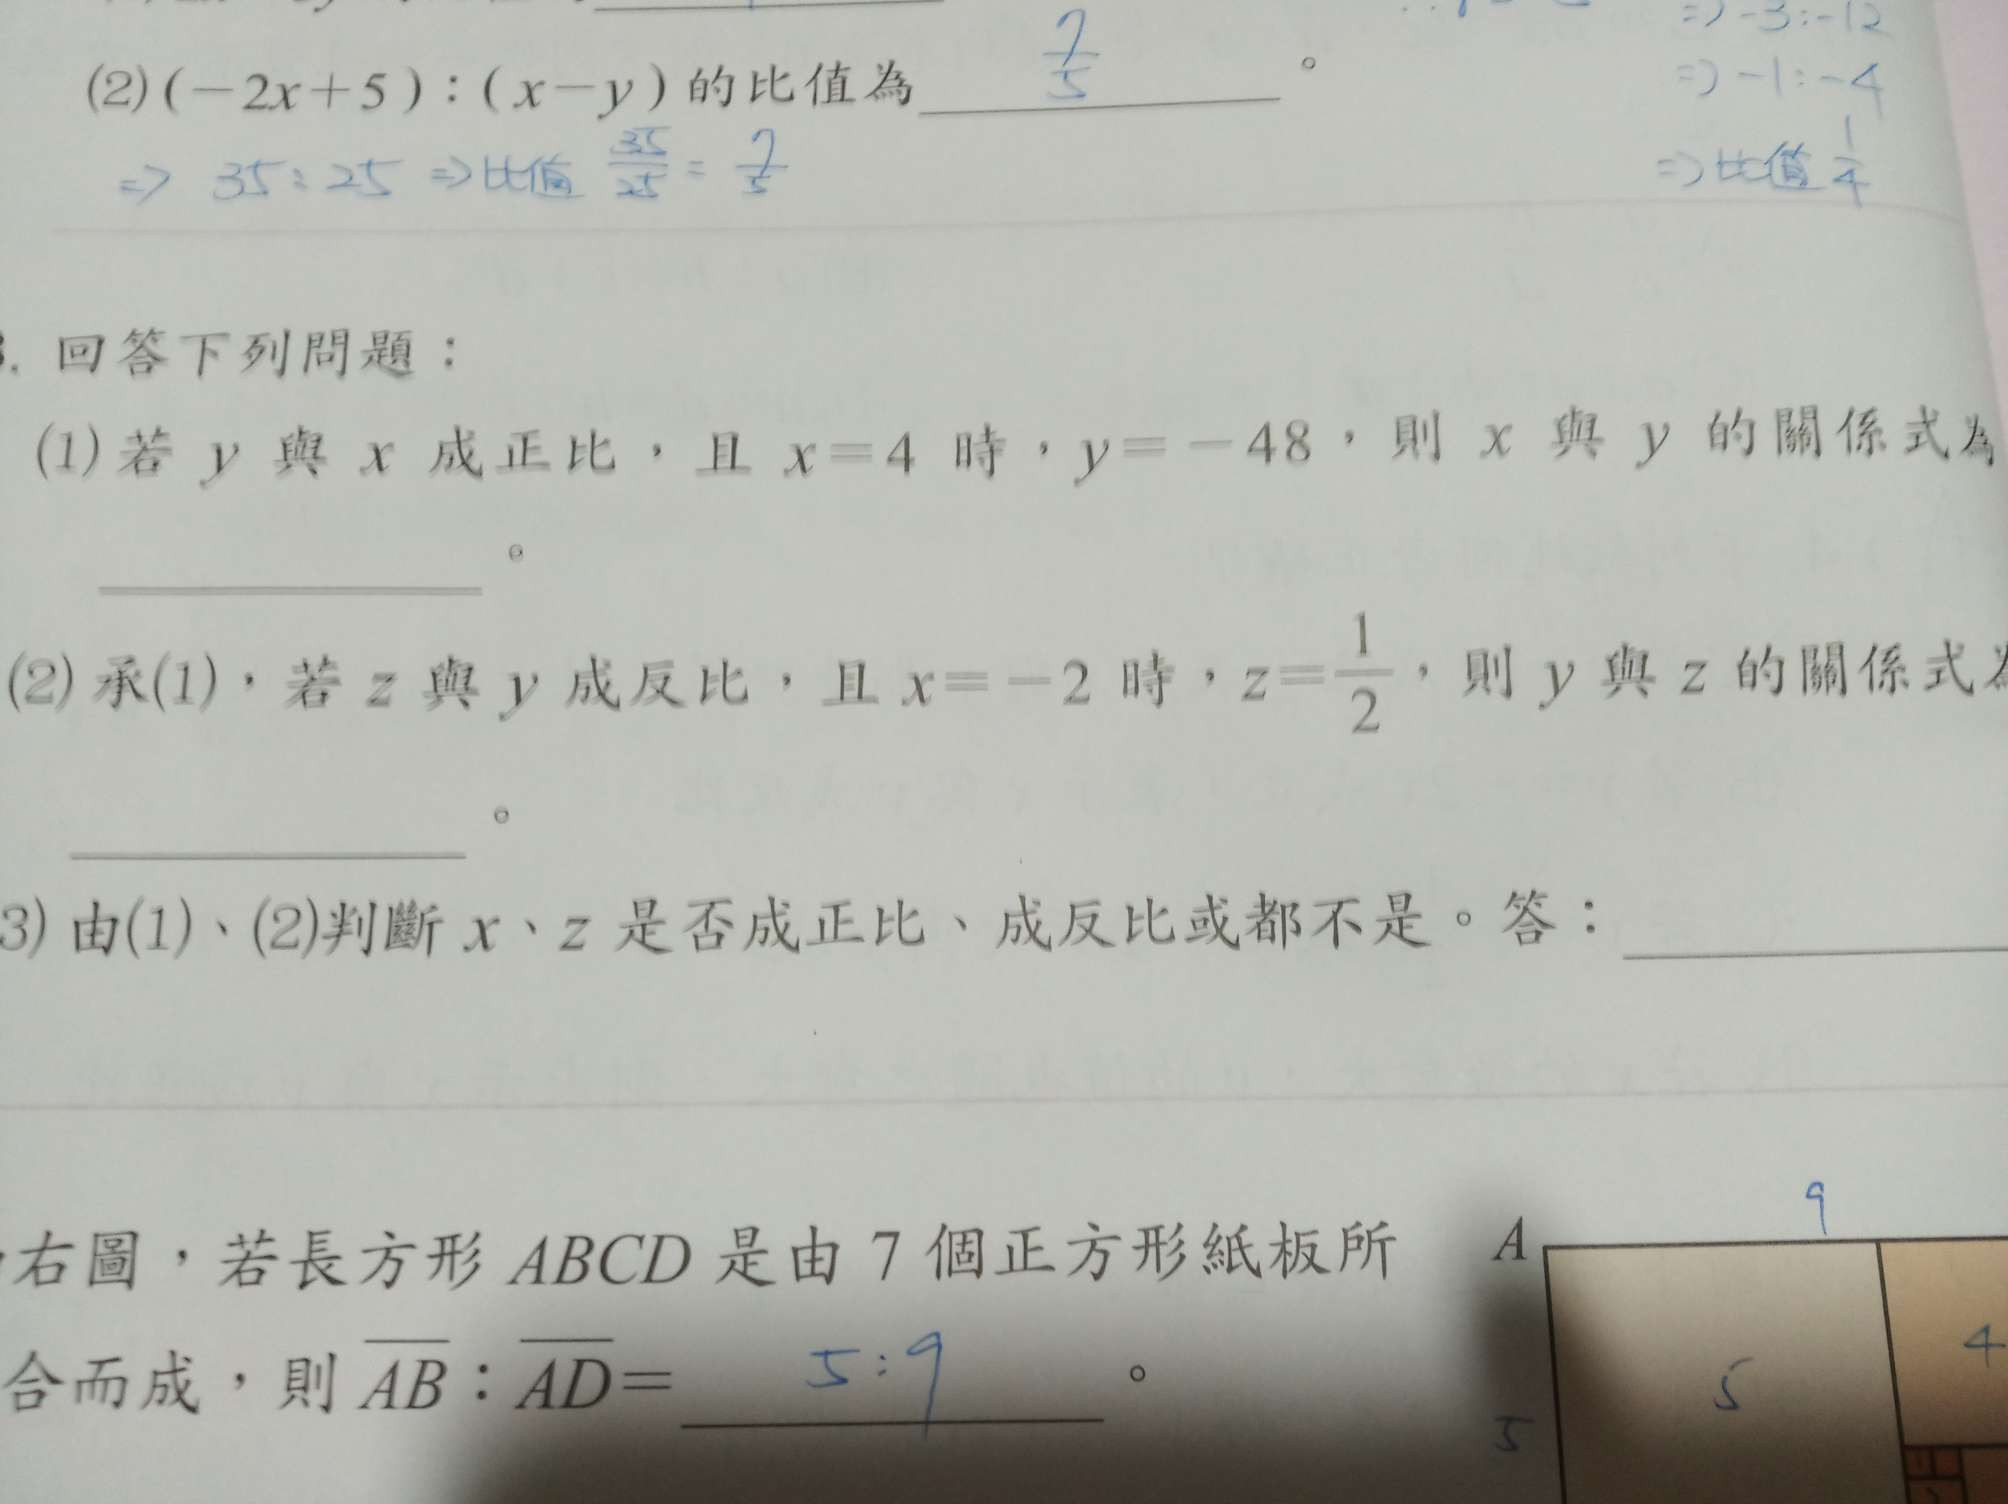 (2)(－2x＋5)：(x－y)的比值為 7/5 。
⇒ -3:-12
⇒ -1:-4
⇒ 比值 1/4
⇒ 35:25 ⇒ 比值 35/25 = 7/5
. 回答下列問題：
(1) 若 y 與 x 成正比，且 x＝4 時，y＝－48，則 x 與 y 的關係式為
。
(2) 承(1)，若 z 與 y 成反比，且 x＝－2 時，z＝1/2，則 y 與 z 的關係式為
。
3) 由(1)、(2)判斷 x、z 是否成正比、成反比或都不是。答：
右圖，若長方形 ABCD 是由 7 個正方形紙板所
合而成，則 AB：AD＝ 5:9 。
9
A
4
5
5